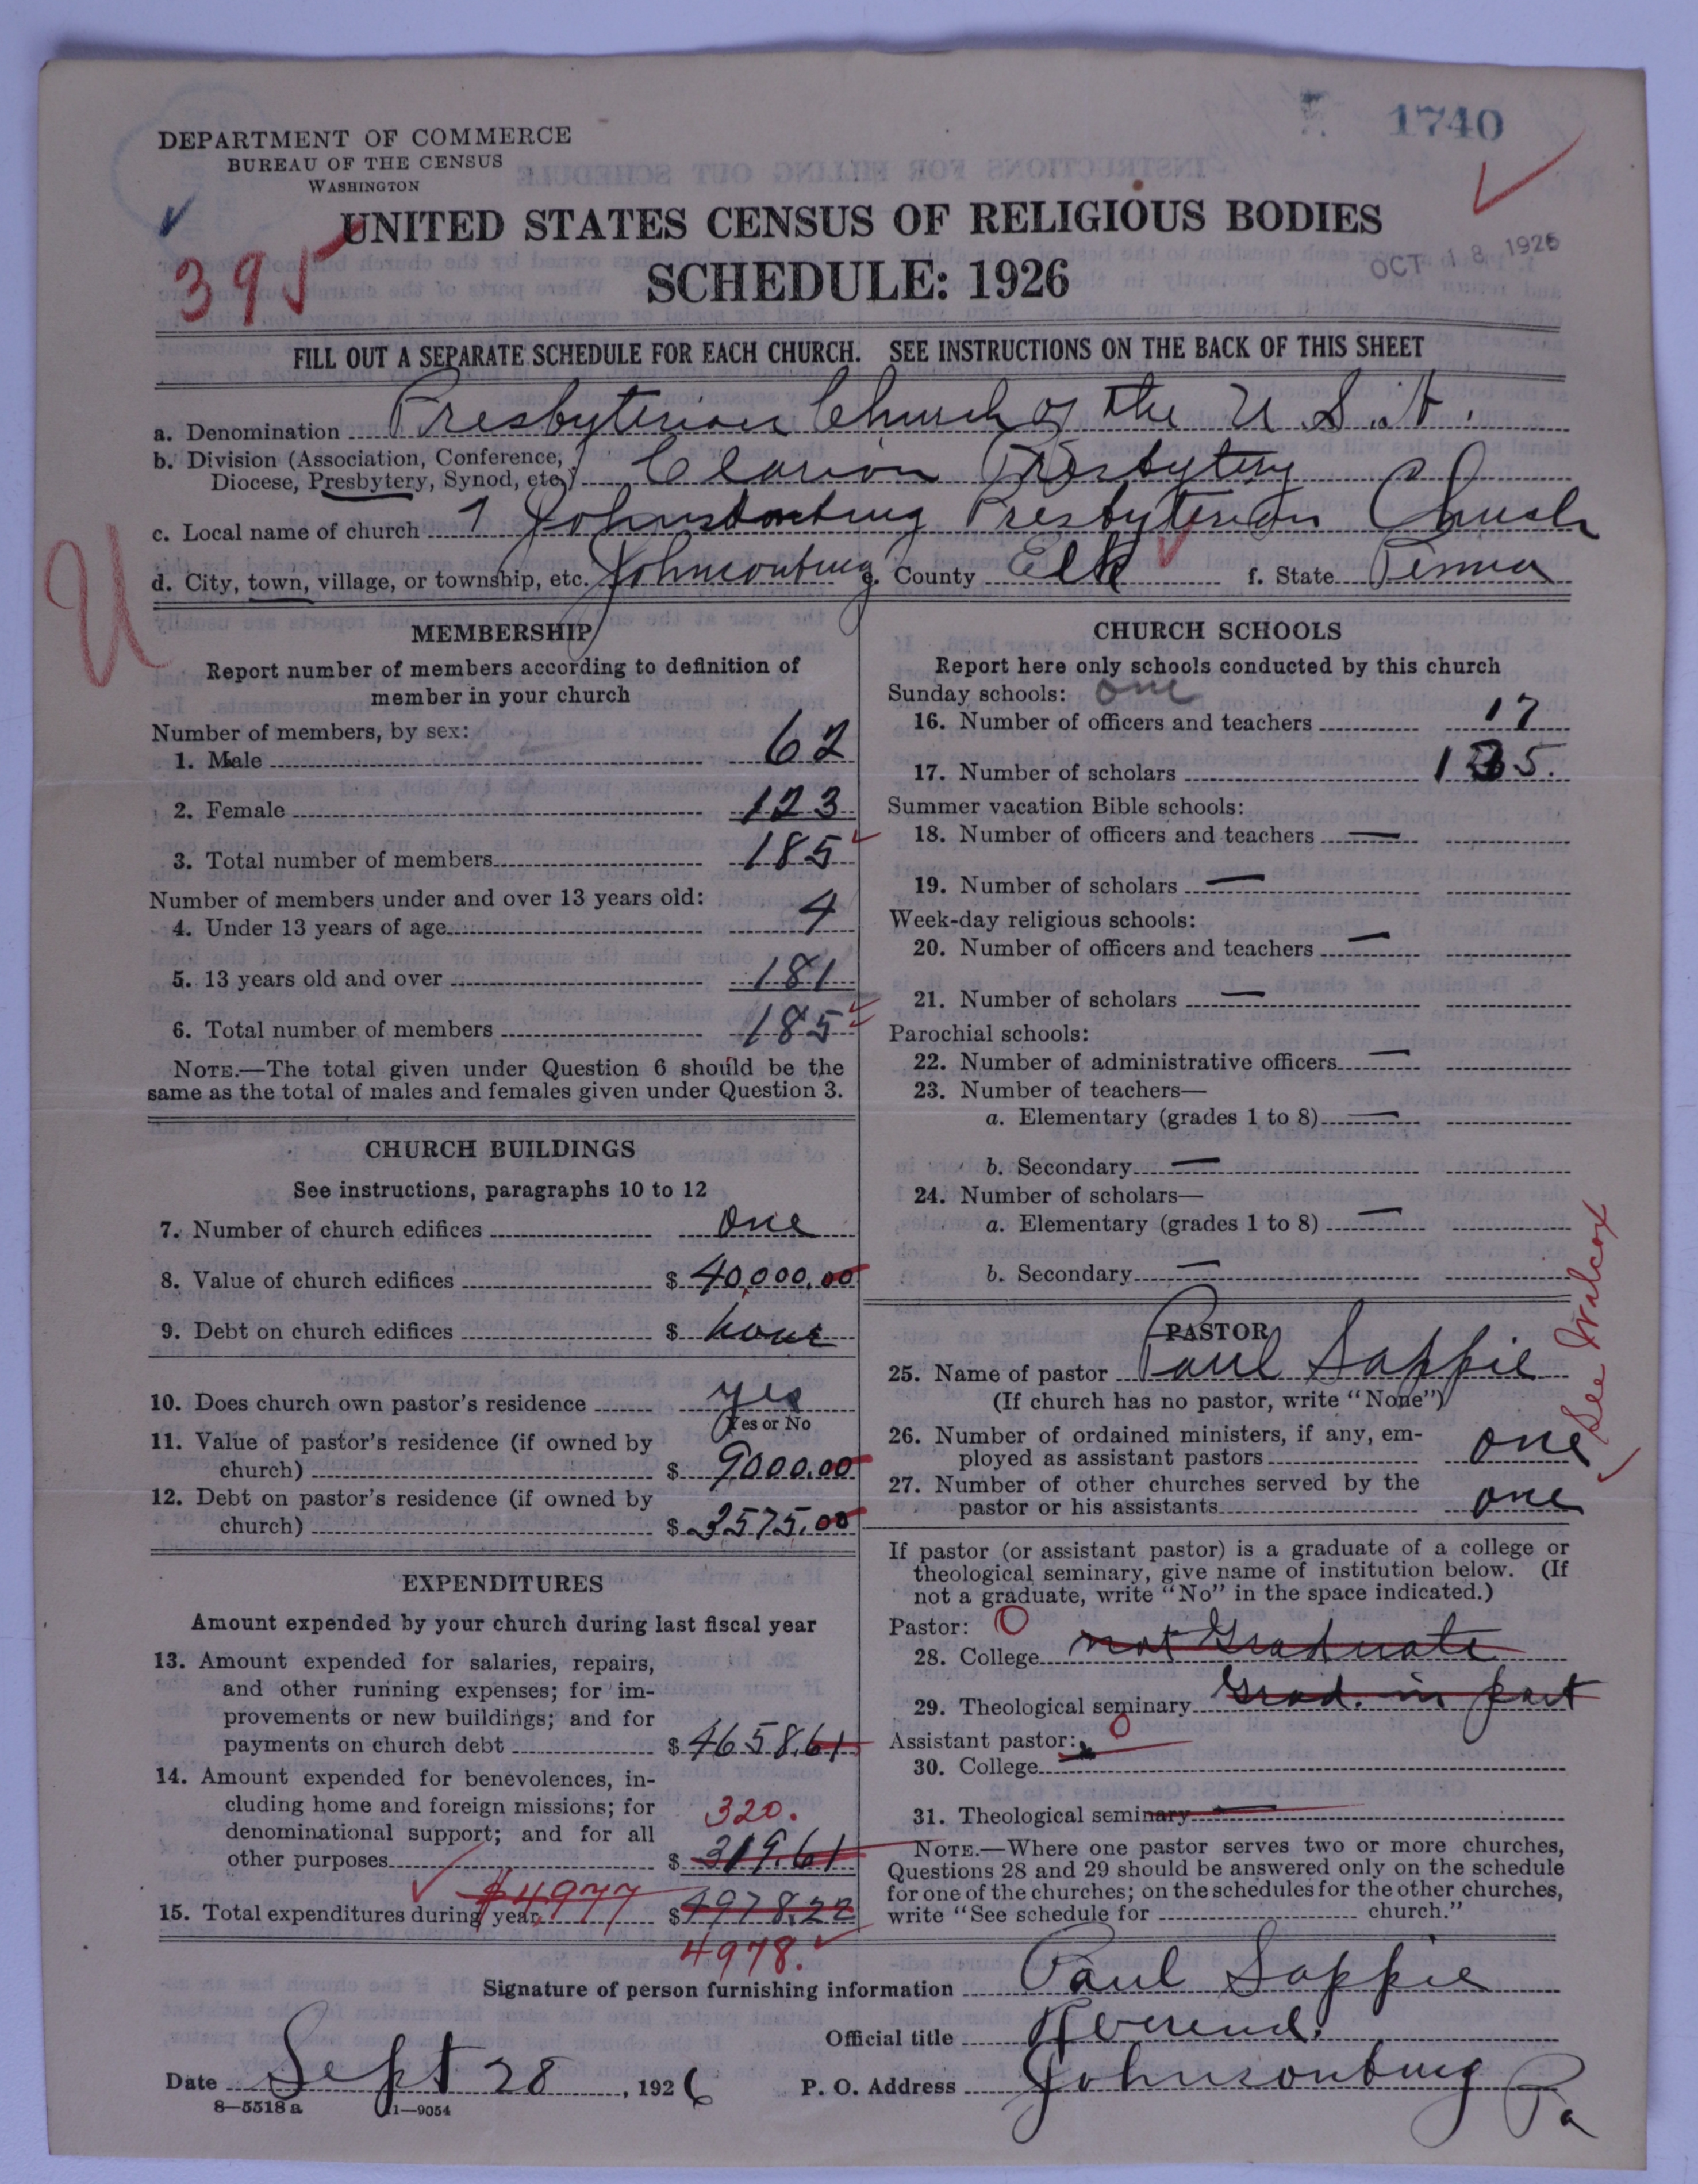 1740
DEPARTMENT OF COMMERCE
BUREAU OF THE CENSUS
WASHINGTON
UNITED STATES CENSUS OF RELIGIOUS BODIES
SCHEDULE: 1926
OCT 18 1926
395
FILL OUT A SEPARATE SCHEDULE FOR EACH CHURCH. SEE INSTRUCTIONS ON THE BACK OF THIS SHEET
a. Denomination Presbyterian Church of the U.S.A.
b. Division (Association, Conference, Diocese, Presbytery, Synod, etc.) Clarion Presbytery
c. Local name of church Johnsonburg Presbyterian Church
d. City, town, village, or township, etc. Johnsonburg e. County Elk f. State Penna
U
MEMBERSHIP
Report number of members according to definition of
member in your church
Number of members, by sex:
1. Male 62
2. Female 123
3. Total number of members 185
Number of members under and over 13 years old:
4. Under 13 years of age 4
5. 13 years old and over 181
6. Total number of members 185
NOTE.—The total given under Question 6 should be the
same as the total of males and females given under Question 3.
CHURCH BUILDINGS
See instructions, paragraphs 10 to 12
7. Number of church edifices one
8. Value of church edifices $ 40,000.00
9. Debt on church edifices $ none
10. Does church own pastor's residence yes
(Yes or No
11. Value of pastor's residence (if owned by
church) $ 9000.00
12. Debt on pastor's residence (if owned by
church) $ 3575.00
EXPENDITURES
Amount expended by your church during last fiscal year
13. Amount expended for salaries, repairs,
and other running expenses; for im-
provements or new buildings; and for
payments on church debt $ 4658.61
14. Amount expended for benevolences, in-
cluding home and foreign missions; for
320.
denominational support; and for all
other purposes $ 319.61
$4977
15. Total expenditures during year $ 4978.22
4978.
CHURCH SCHOOLS
Report here only schools conducted by this church
Sunday schools: one
16. Number of officers and teachers 17
17. Number of scholars 135.
Summer vacation Bible schools:
18. Number of officers and teachers —
19. Number of scholars —
Week-day religious schools:
20. Number of officers and teachers —
21. Number of scholars —
Parochial schools:
22. Number of administrative officers —
23. Number of teachers—
a. Elementary (grades 1 to 8) —
b. Secondary —
24. Number of scholars—
a. Elementary (grades 1 to 8) —
b. Secondary —
PASTOR
25. Name of pastor Paul Sappie
(If church has no pastor, write "None")
26. Number of ordained ministers, if any, em-
ployed as assistant pastors one
27. Number of other churches served by the
pastor or his assistants one
See Wilcox
If pastor (or assistant pastor) is a graduate of a college or
theological seminary, give name of institution below. (If
not a graduate, write "No" in the space indicated.)
Pastor: O
28. College not Graduate
29. Theological seminary Grad. in part
Assistant pastor: O
30. College
31. Theological seminary —
NOTE.—Where one pastor serves two or more churches,
Questions 28 and 29 should be answered only on the schedule
for one of the churches; on the schedules for the other churches,
write "See schedule for church."
Signature of person furnishing information Paul Sappie
Official title Reverend.
Date Sept 28, 1926 P. O. Address Johnsonburg Pa
8—5518a 11—9054